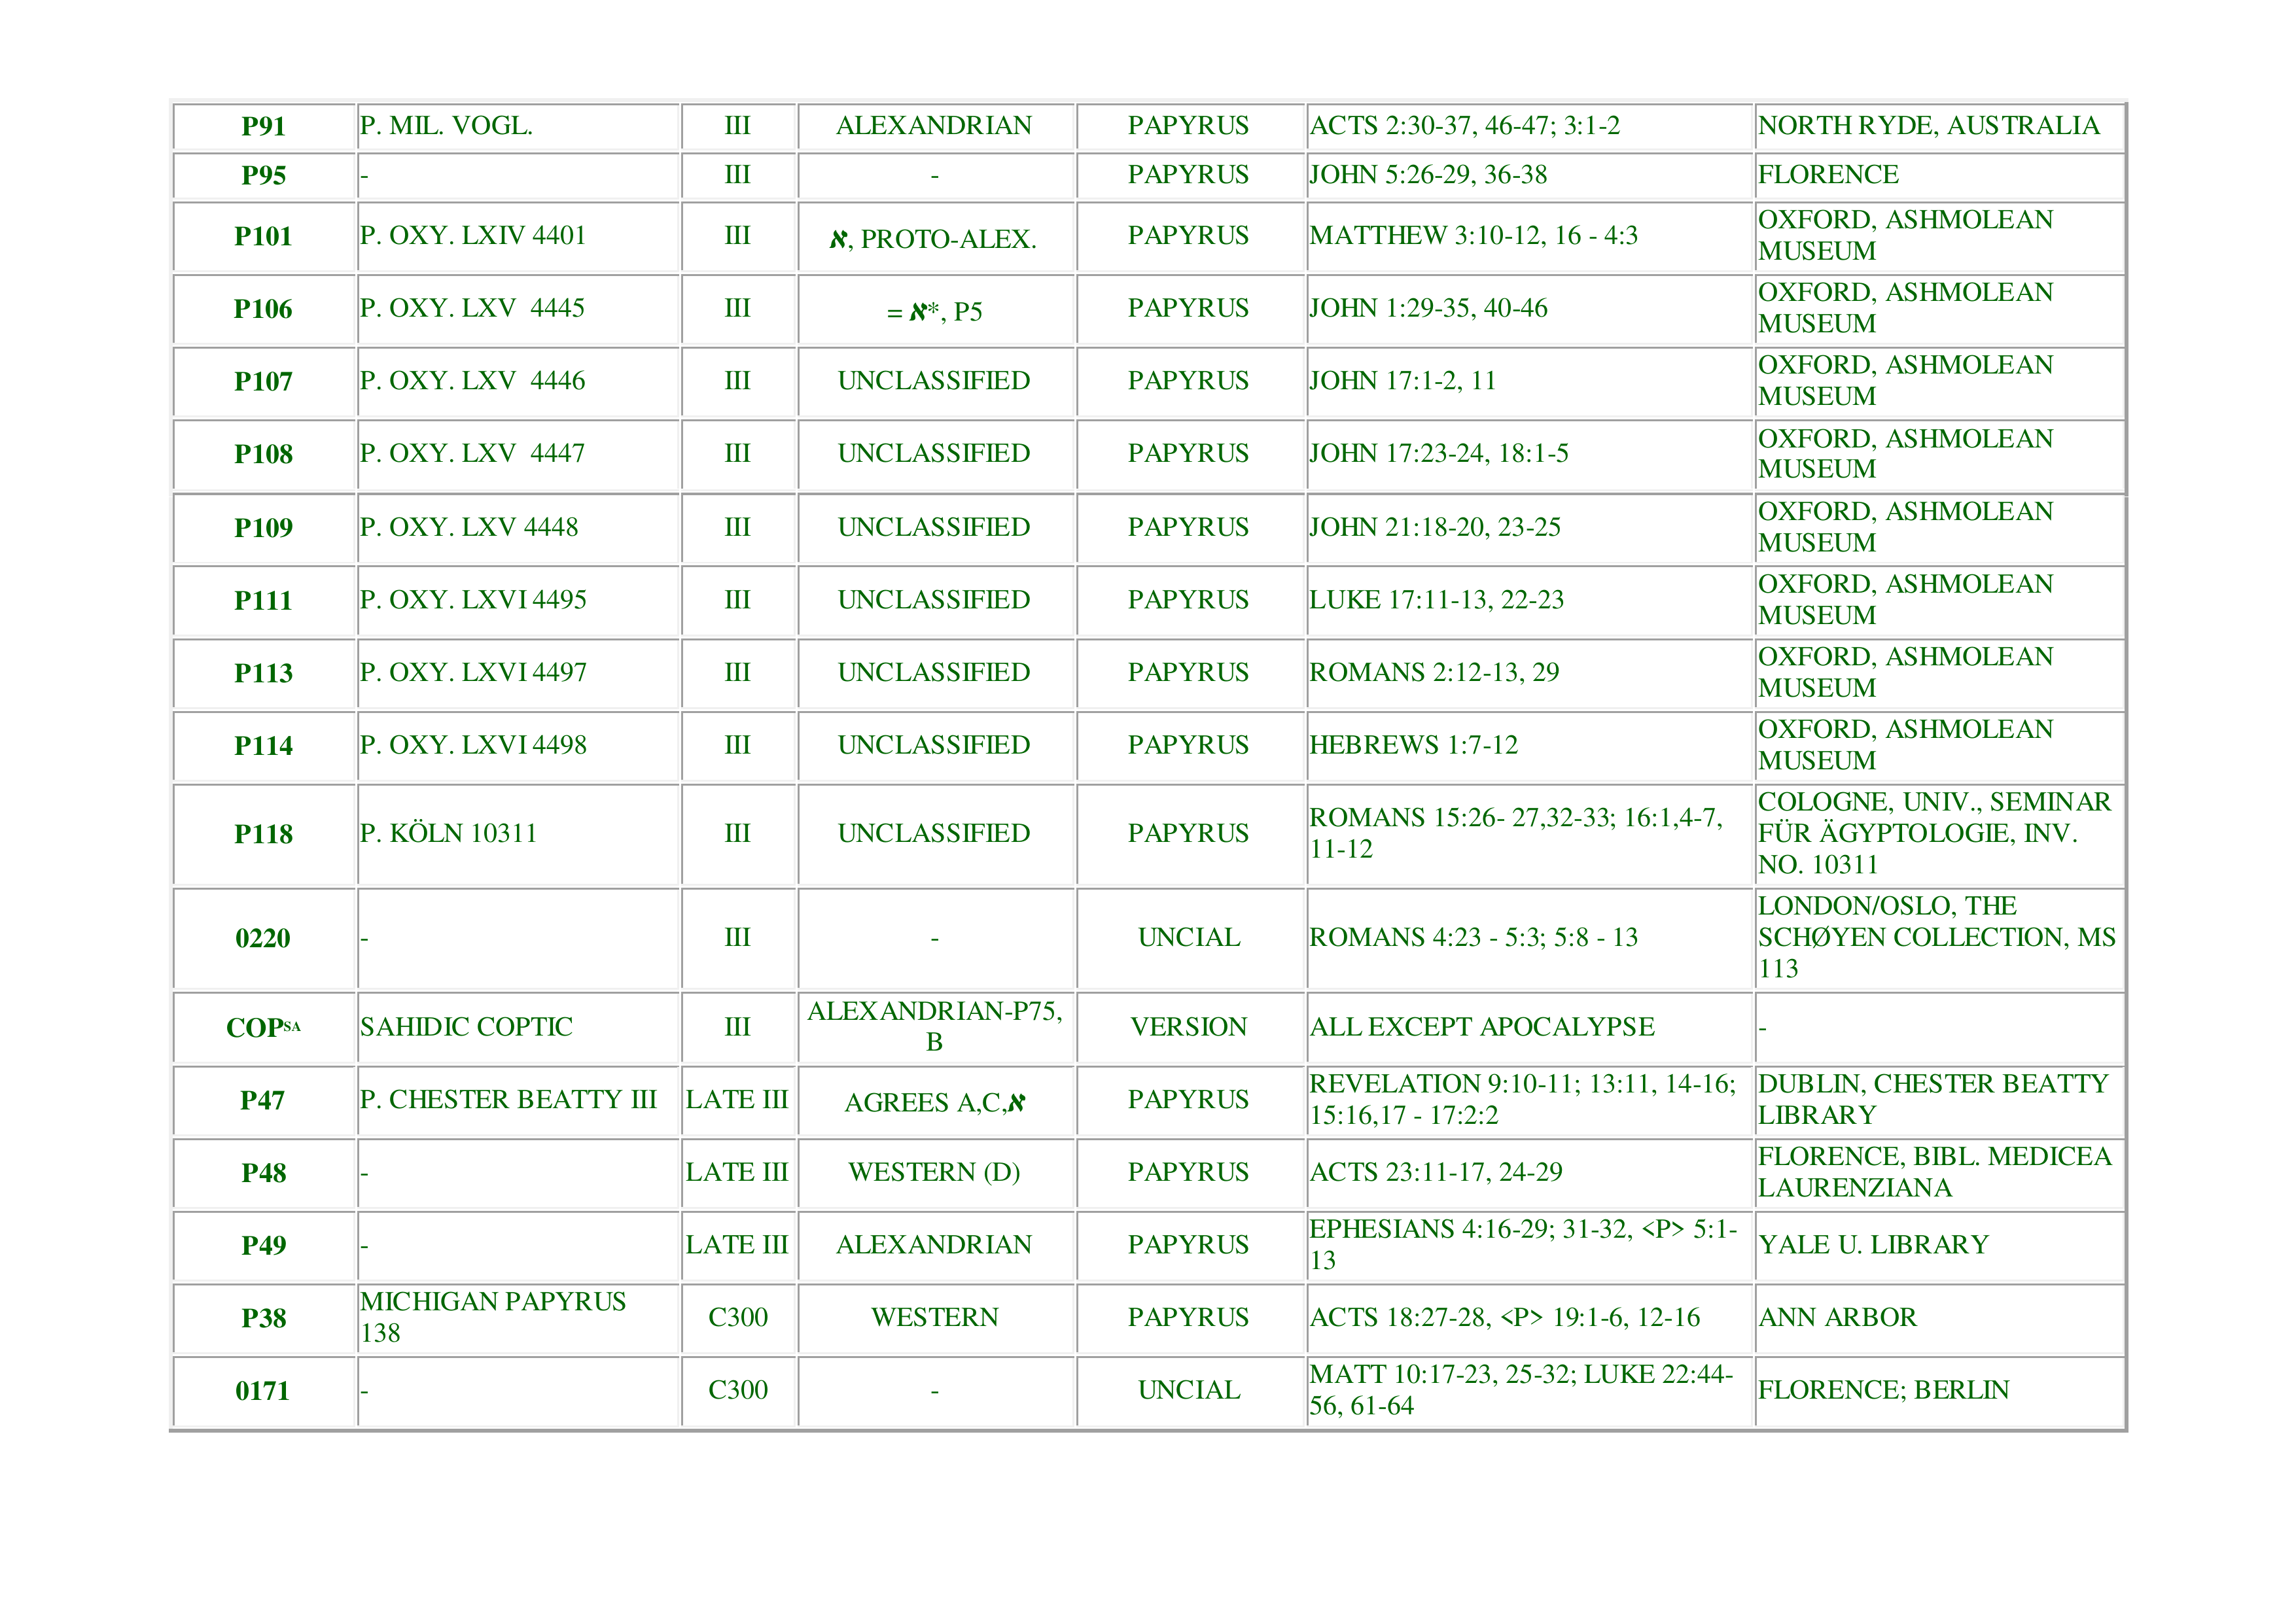 P91 P. MIL. VOGL. III ALEXANDRIAN PAPYRUS ACTS 2:30-37, 46-47; 3:1-2 NORTH RYDE, AUSTRALIA
P95 - III - PAPYRUS JOHN 5:26-29, 36-38 FLORENCE
P101 P. OXY. LXIV 4401 III א, PROTO-ALEX. PAPYRUS MATTHEW 3:10-12, 16 - 4:3 OXFORD, ASHMOLEAN
MUSEUM
P106 P. OXY. LXV 4445 III = א*, P5 PAPYRUS JOHN 1:29-35, 40-46 OXFORD, ASHMOLEAN
MUSEUM
P107 P. OXY. LXV 4446 III UNCLASSIFIED PAPYRUS JOHN 17:1-2, 11 OXFORD, ASHMOLEAN
MUSEUM
P108 P. OXY. LXV 4447 III UNCLASSIFIED PAPYRUS JOHN 17:23-24, 18:1-5 OXFORD, ASHMOLEAN
MUSEUM
P109 P. OXY. LXV 4448 III UNCLASSIFIED PAPYRUS JOHN 21:18-20, 23-25 OXFORD, ASHMOLEAN
MUSEUM
P111 P. OXY. LXVI 4495 III UNCLASSIFIED PAPYRUS LUKE 17:11-13, 22-23 OXFORD, ASHMOLEAN
MUSEUM
P113 P. OXY. LXVI 4497 III UNCLASSIFIED PAPYRUS ROMANS 2:12-13, 29 OXFORD, ASHMOLEAN
MUSEUM
P114 P. OXY. LXVI 4498 III UNCLASSIFIED PAPYRUS HEBREWS 1:7-12 OXFORD, ASHMOLEAN
MUSEUM
P118 P. KÖLN 10311 III UNCLASSIFIED PAPYRUS ROMANS 15:26- 27,32-33; 16:1,4-7,
11-12
COLOGNE, UNIV., SEMINAR
FÜR ÄGYPTOLOGIE, INV.
NO. 10311
0220 - III - UNCIAL ROMANS 4:23 - 5:3; 5:8 - 13 LONDON/OSLO, THE
SCHØYEN COLLECTION, MS
113
COPSA SAHIDIC COPTIC III ALEXANDRIAN-P75,
B
VERSION ALL EXCEPT APOCALYPSE -
P47 P. CHESTER BEATTY III LATE III AGREES A,C,א PAPYRUS REVELATION 9:10-11; 13:11, 14-16;
15:16,17 - 17:2:2
DUBLIN, CHESTER BEATTY
LIBRARY
P48 - LATE III WESTERN (D) PAPYRUS ACTS 23:11-17, 24-29 FLORENCE, BIBL. MEDICEA
LAURENZIANA
P49 - LATE III ALEXANDRIAN PAPYRUS EPHESIANS 4:16-29; 31-32, <P> 5:1-
13
YALE U. LIBRARY
P38 MICHIGAN PAPYRUS
138
C300 WESTERN PAPYRUS ACTS 18:27-28, <P> 19:1-6, 12-16 ANN ARBOR
0171 - C300 - UNCIAL MATT 10:17-23, 25-32; LUKE 22:44-
56, 61-64
FLORENCE; BERLIN